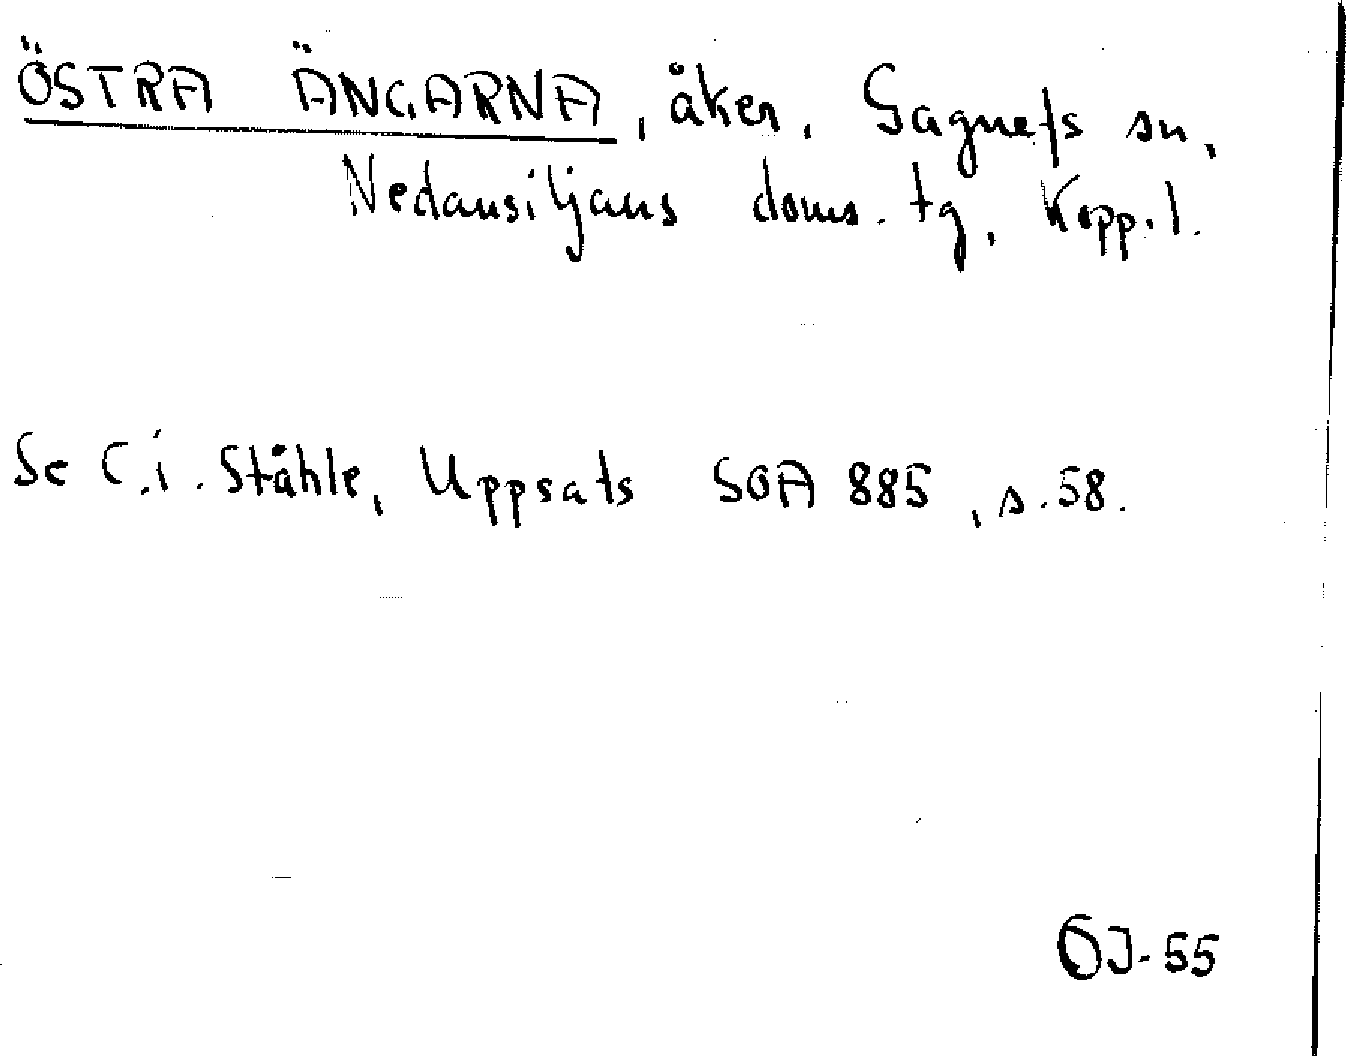 ÖSTRA ÄNGARNA, åker, Gagnefs sn,
Nedansiljans doms. tg, Kopp.l.
Se C.i. Ståhle, Uppsats SOA 885, s.58.
ÖJ-55